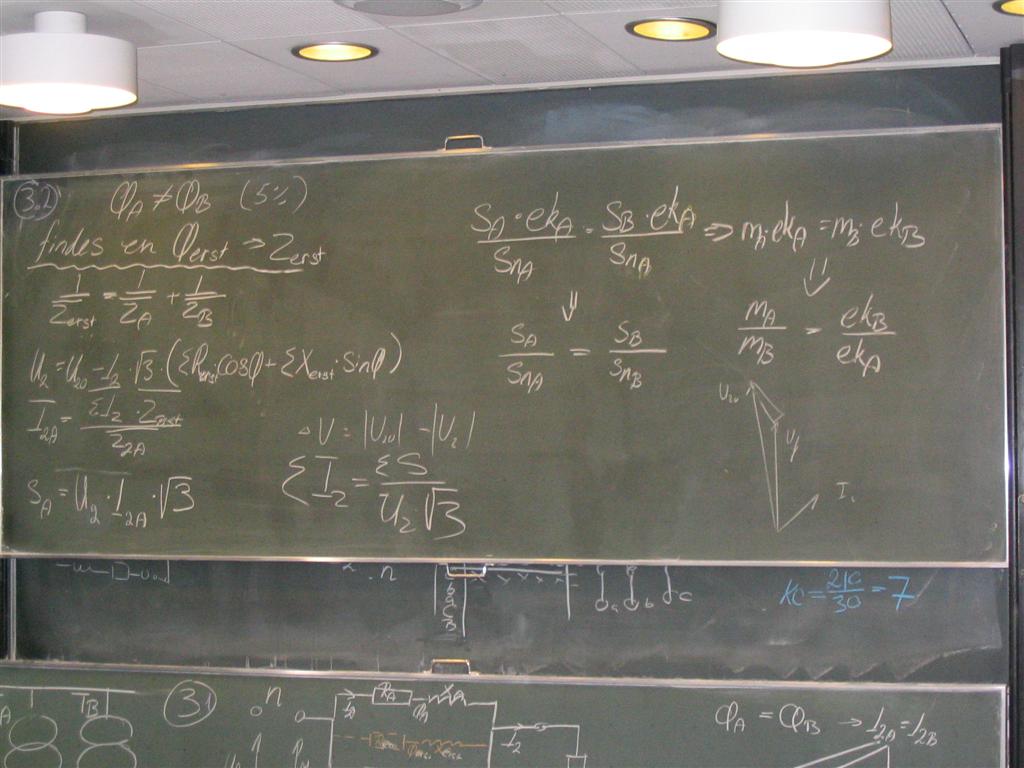 3.2 φA ≠ φB (5%)
findes en φerst ⇒ Zerst
1/Zerst = 1/ZA + 1/ZB
U2 = U20 - I2 · √3 · (ΣRerst cosφ + ΣXerst · sinφ)
I2A = ΣI2 · Zerst / Z2A
SA = U2 · I2A · √3
ΔU = |U20| - |U2|
ΣI2 = ΣS / U2 · √3
SA · ekA / SnA = SB · ekA / SnA ⇒ mA · ekA = mB · ekB
⇓ ⇓
SA / SnA = SB / SnB
mA / mB = ekB / ekA
U20
I
n
a b c
KC = 210/30 = 7
A TB
3.1 n
RA
I2
φA = φB → I2A = I2B